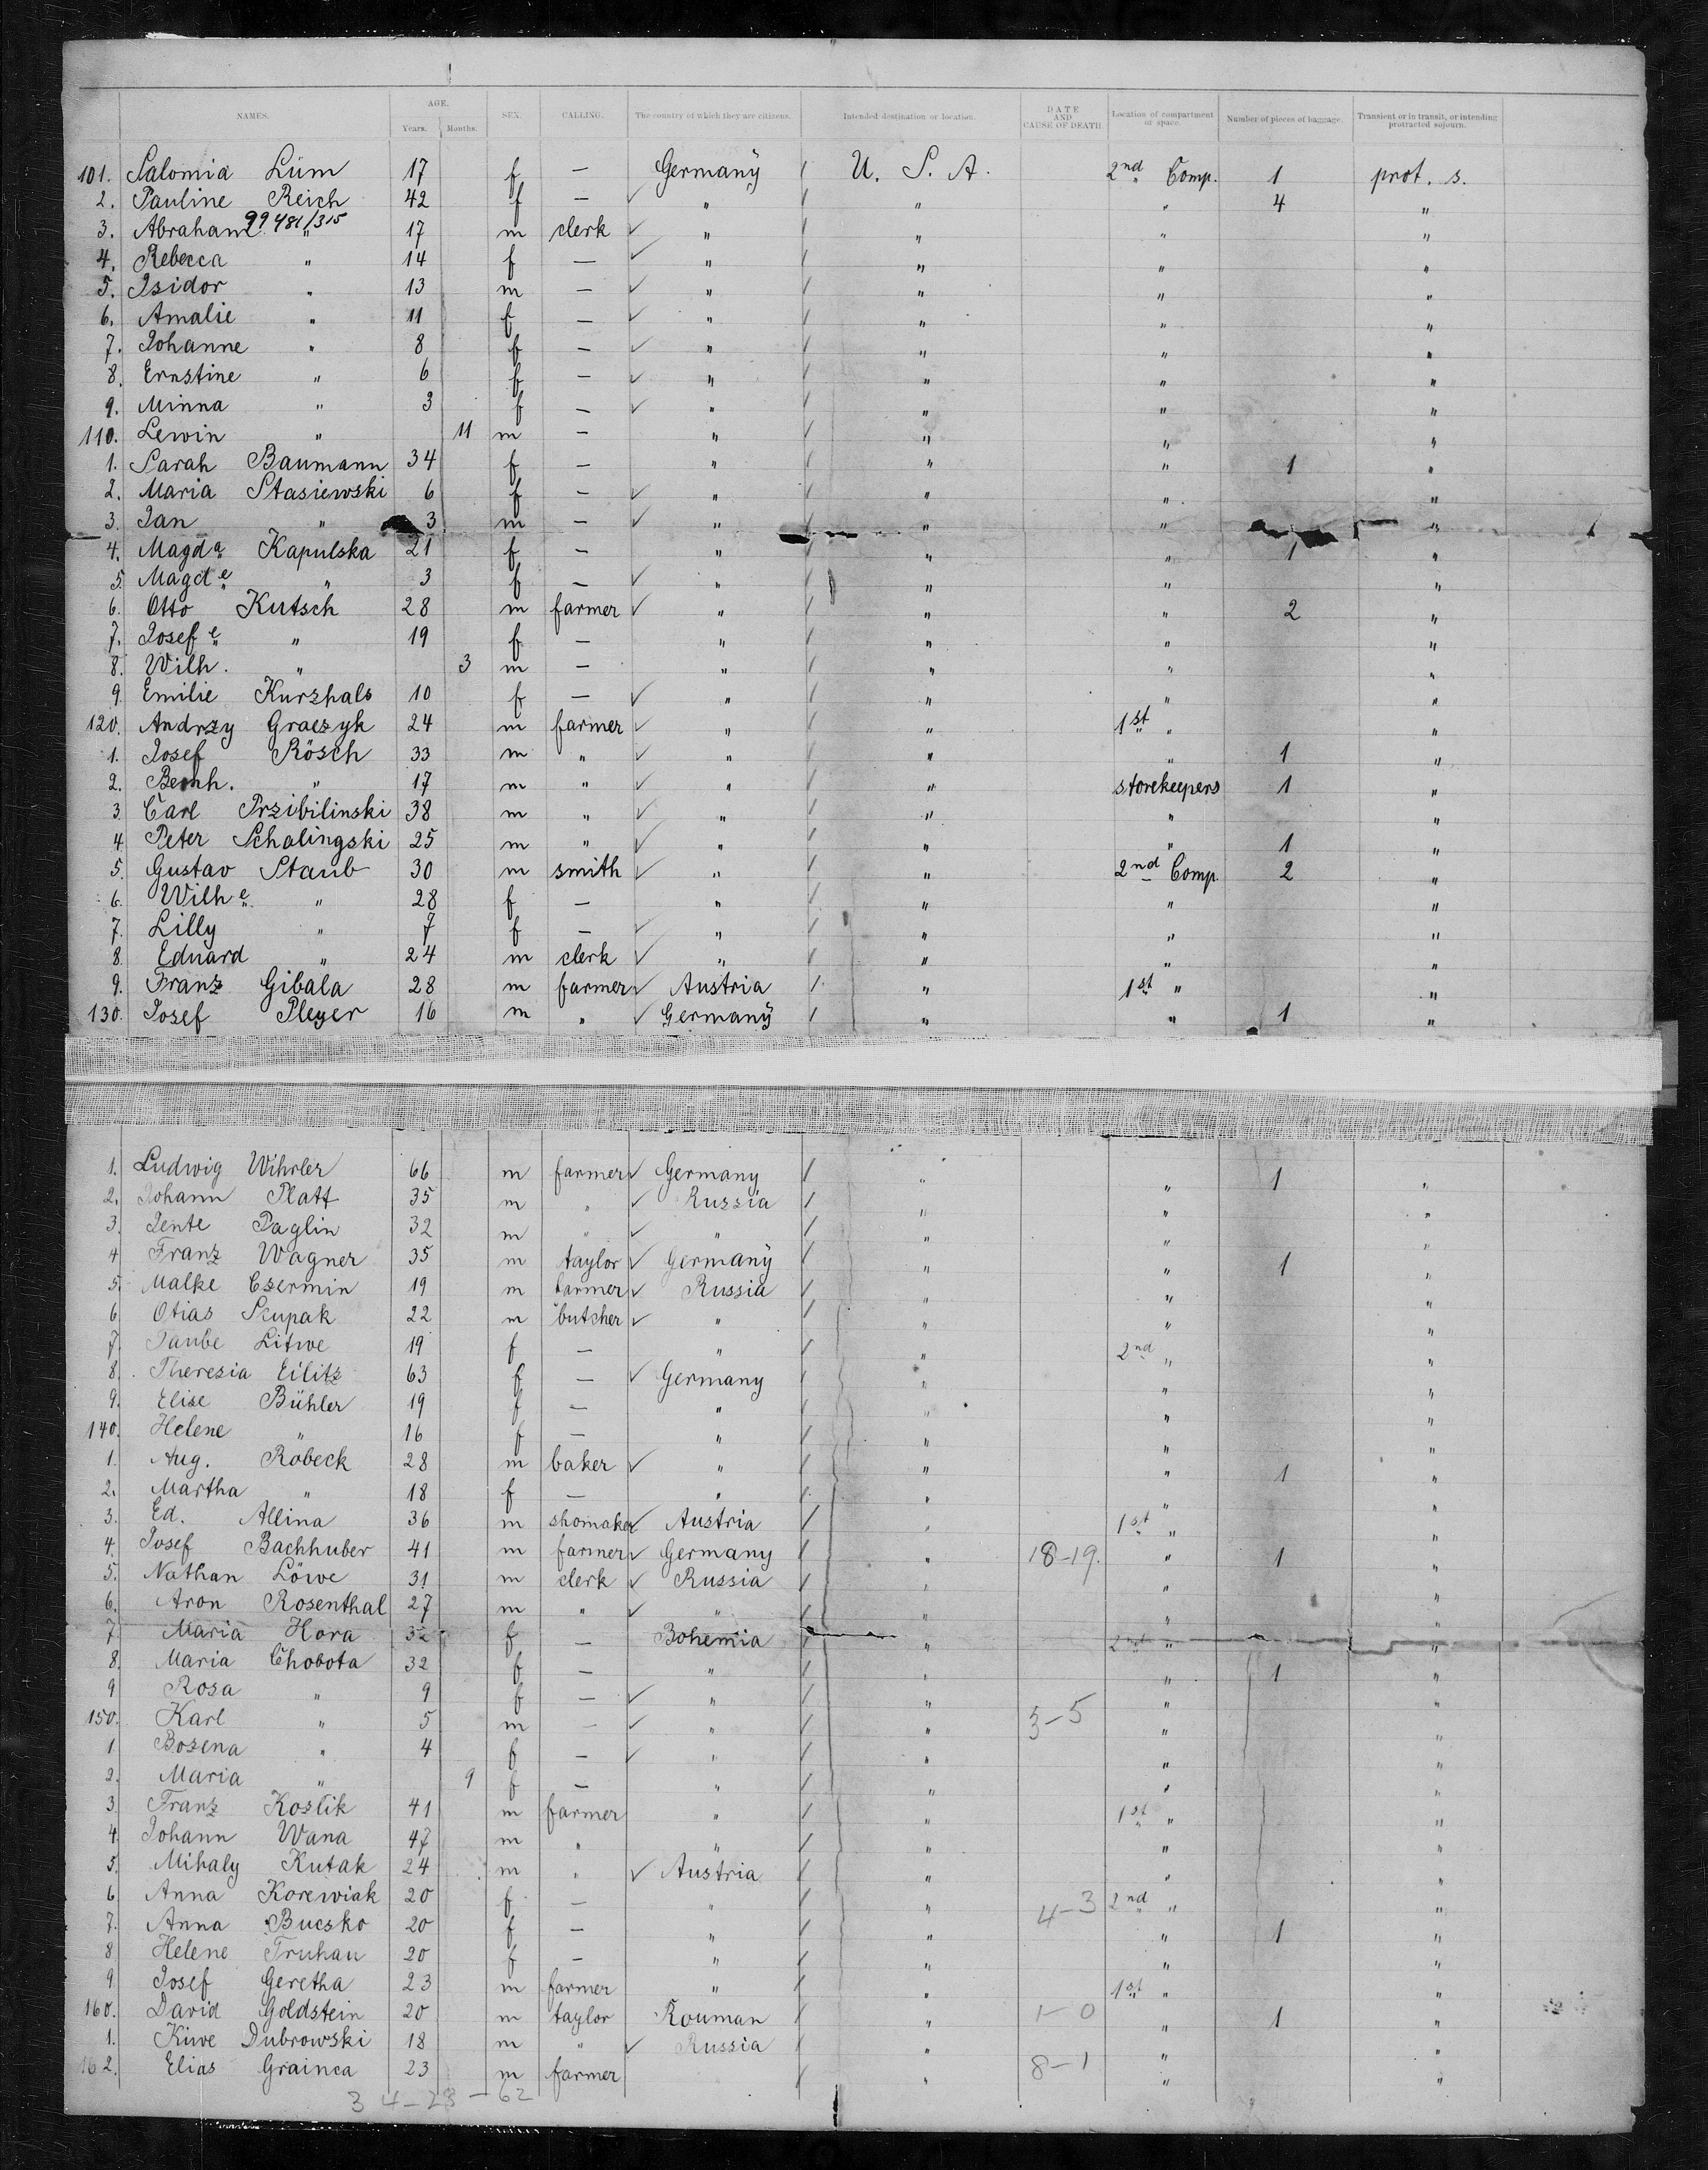 NAMES. AGE. Years. Months. SEX. CALLING. The country of which they are citizens. Intended destination or location. DATE AND CAUSE OF DEATH. Location of compartment or space. Number of pieces of baggage. Transient or in transit, or intending protracted sojourn.
101. Salomia Lüm 17 f — Germany / U. S. A. 2nd Comp. 1 prot. s.
2. Pauline Reich 42 f — ✓ " / " " 4 "
99481/315
3. Abraham " 17 m clerk ✓ " / " " "
4. Rebecca " 14 f — ✓ " / " " "
5. Isidor " 13 m — ✓ " / " " "
6. Amalie " 11 f — ✓ " / " " "
7. Johanne " 8 f — ✓ " / " " "
8. Ernstine " 6 f — ✓ " / " " "
9. Minna " 3 f — ✓ " / " " "
110. Lewin " 11 m — " / " " "
1. Sarah Baumann 34 f — " / " " 1 "
2. Maria Stasiewski 6 f — ✓ " / " " "
3. Jan " 3 m — ✓ " / " " "
4. Magda Kapulska 21 f — " / " " 1 "
5. Magde " 3 f — ✓ " / " " "
6. Otto Kutsch 28 m farmer ✓ " / " " 2 "
7. Josefe " 19 f — " / " " "
8. Wilh. " 3 m — " / " " "
9. Emilie Kurzhals 10 f — ✓ " / " " "
120. Andrzy Graczyk 24 m farmer ✓ " / " 1st " "
1. Josef Rösch 33 m " ✓ " / " " 1 "
2. Bernh. " 17 m " ✓ " / " storekeepers 1 "
3. Carl Przibilinski 38 m " ✓ " / " " "
4. Peter Schalingski 25 m " ✓ " / " " 1 "
5. Gustav Staub 30 m smith ✓ " / " 2nd Comp. 2 "
6. Wilhe " 28 f — " / " " "
7. Lilly " 7 f — ✓ " / " " "
8. Eduard " 24 m clerk ✓ " / " " "
9. Franz Gibala 28 m farmer ✓ Austria / " 1st " "
130. Josef Pleyer 16 m " ✓ Germany / " " 1 "
1. Ludwig Wihrler 66 m farmer ✓ Germany / " " 1 "
2. Johann Platt 35 m " ✓ Russia / " " "
3. Jente Paglin 32 m " ✓ " / " " "
4. Franz Wagner 35 m taylor ✓ Germany / " " 1 "
5. Malke Czermin 19 m farmer ✓ Russia / " " "
6. Otias Scupak 22 m butcher ✓ " / " " "
7. Taube Litwe 19 f — " / " 2nd " "
8. Theresia Eilitz 63 f — ✓ Germany / " " "
9. Elise Bühler 19 f — " / " " "
140. Helene " 16 f — " / " " "
1. Aug. Robeck 28 m baker ✓ " / " " 1 "
2. Martha " 18 f — " / " " "
3. Ed. Allina 36 m shomaker ✓ Austria / " 1st " "
4. Josef Bachhuber 41 m farmer ✓ Germany / " 18-19. " 1 "
5. Nathan Löwe 31 m clerk ✓ Russia / " " "
6. Aron Rosenthal 27 m " ✓ " / " " "
7. Maria Hora 32 f — Bohemia / " 2nd " "
8. Maria Chobota 32 f — " / " " 1 "
9. Rosa " 9 f — ✓ " / " " "
150. Karl " 5 m — ✓ " / " 5-5 " "
1. Bozena " 4 f — ✓ " / " " "
2. Maria " 9 f — " / " " "
3. Franz Koslik 41 m farmer " / " 1st " "
4. Johann Wana 47 m " " / " " "
5. Mihaly Kutak 24 m " ✓ Austria / " " "
6. Anna Korewiak 20 f — " / " 4-3 2nd " "
7. Anna Bucsko 20 f — " / " " 1 "
8. Helene Truhan 20 f — " / " " "
9. Josef Geretha 23 m farmer " / " 1st " "
160. David Goldstein 20 m taylor Rouman / " 1-0 " 1 "
1. Kiwe Dubrowski 18 m " ✓ Russia / " " "
162. Elias Grainca 23 m farmer / " 8-1 " "
34-28-62